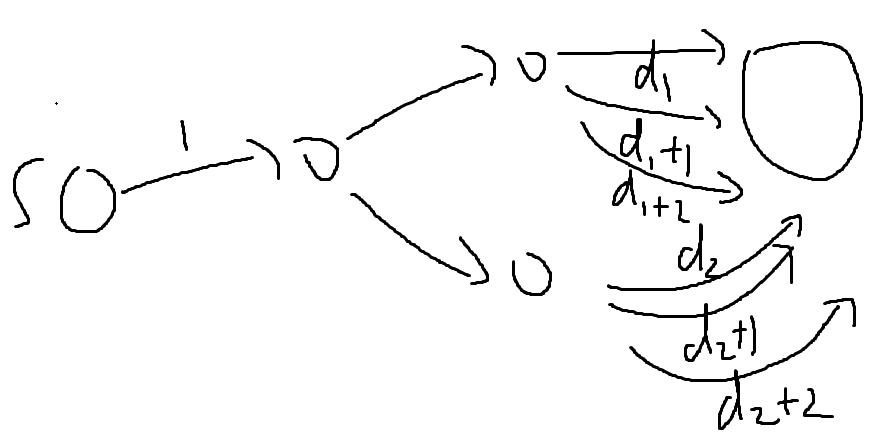 S
1
d₁
d₁+1
d₁+2
d₂
d₂+1
d₂+2